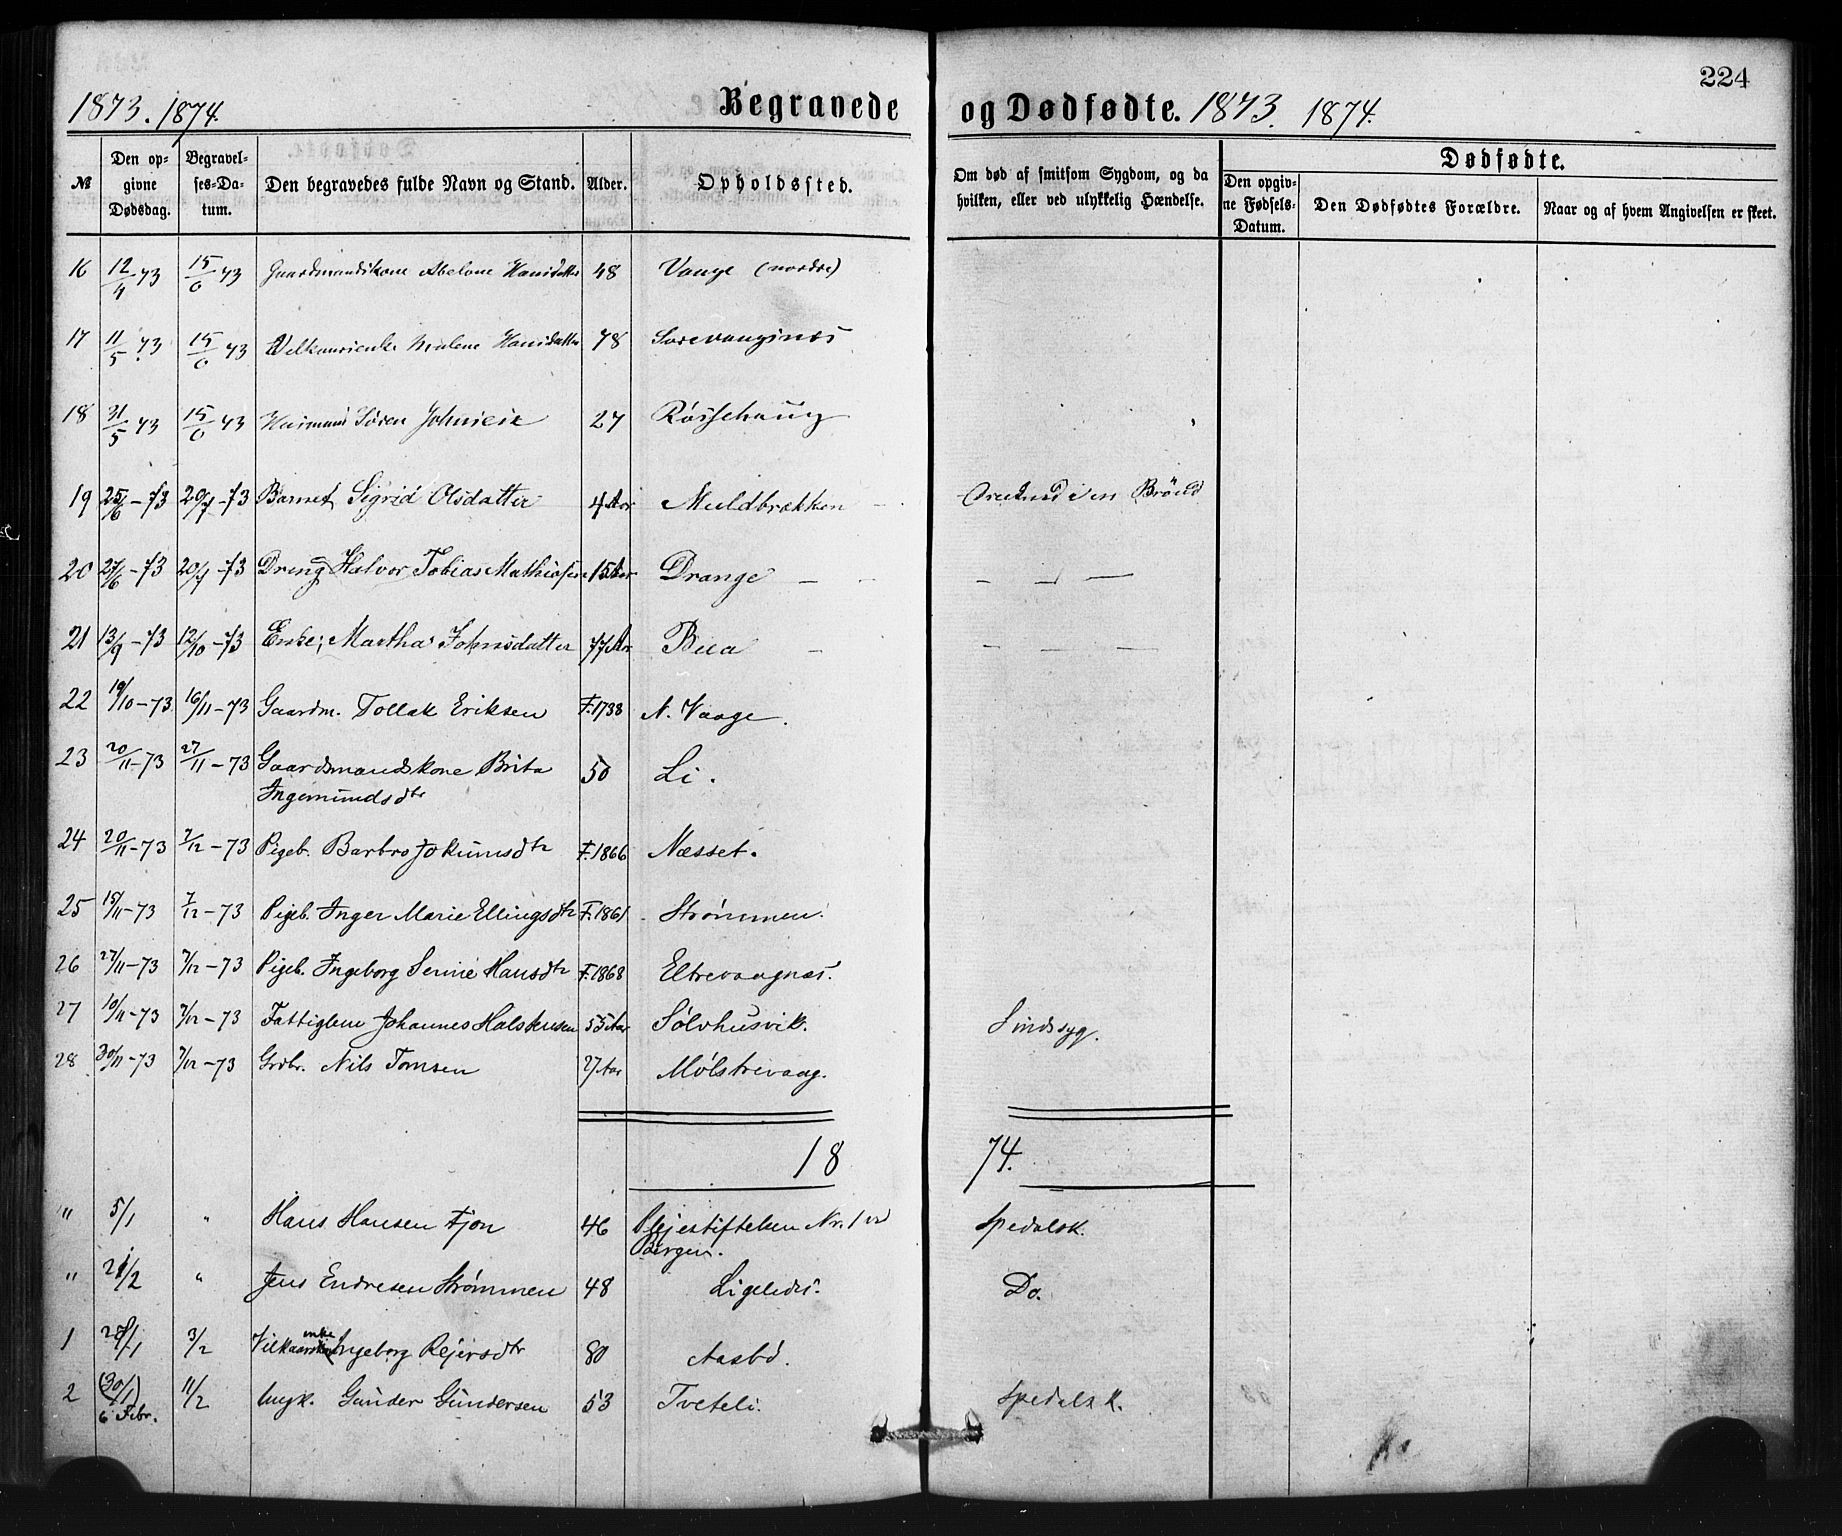 224
1873. 1874. Begravede og Dødfødte. 1873. 1874.
№ Den opgivne Dødsdag. Begravelses-Datum. Den begravedes fulde Navn og Stand. Alder. Opholdssted. Om død af smitsom Sygdom, og da hvilken, eller ved ulykkelig Hændelse. Dødfødte.
Den opgivne Fødsels-Datum. Den Dødfødtes Forældre. Naar og af hvem Angivelsen er skeet.
16 12/4 73 15/6 73 Gaardmandskone Abelone Hansdatter 48 Vaage (nordre)
17 11/5 73 15/6 73 Malene Hansdatter 78
18 31/5 73 15/6 73 Husmand Søren Johnsen 27
19 25/6 - 73 20/7 - 73 Barnet Sigrid Olsdatter 4 Aar Muldbrækken Druknet i en Brønd
20 27/6 - 73 20/7 - 73 Dreng Halvor Tobias Mathiasen 15 Aar Drange — — — — —
21 13/9 - 73 12/10 - 73 Enke, Martha Johnsdatter 77 Aar Bua — — — —
22 19/10 - 73 16/11 - 73 Gaardm. Tollak Eriksen F. 1738 N. Vaage.
23 20/11 - 73 27/11 - 73 Gaardsmandskone Brita 50 Li.
Ingemundsdtr
24 20/11 - 73 7/12 - 73 Pigeb. Barbro Jokumsdtr F. 1866 Næsset.
25 15/11 - 73 7/12 - 73 Pigeb. Inger Marie Ellingsdtr F. 1861 Strømmen.
26 27/11 - 73 7/12 - 73 Pigeb. Ingeborg Serine Hansdtr F. 1868 Eltrevaagnæs.
27 10/11 - 73 7/12 - 73 Fattiglem Johannes Halstensen 55 Aar Sølvhusvik. Sindssyg.
28 30/11 - 73 7/12 - 73 Grdbr. Nils Tomsen 27 Aar Mølstrevaag.
18 74.
" 5/1 " Hans Hansen Fjon 46 Plejestiftelsen Nr. 1 i Spedalsk.
Bergen.
" 21/2 " Jens Endresen Strømmen 48 Ligeledes. Do.
1 28/1 3/2 Vilkaarsenke Ingeborg Rejersdtr 80 Aasbø.
2 (30/1) 11/2 Ungk. Gunder Gundersen 53 Tveteli. Spedalsk.
6 Febr.